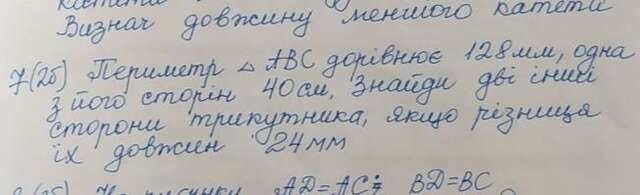 Визнач довжину меншого катета
7(2б) Периметр △ ABC дорівнює 128мм, одна
з його сторін 40см, Знайди дві інші
сторони трикутника, якщо різниця
їх довжин 24мм
AD=AC; BD=BC